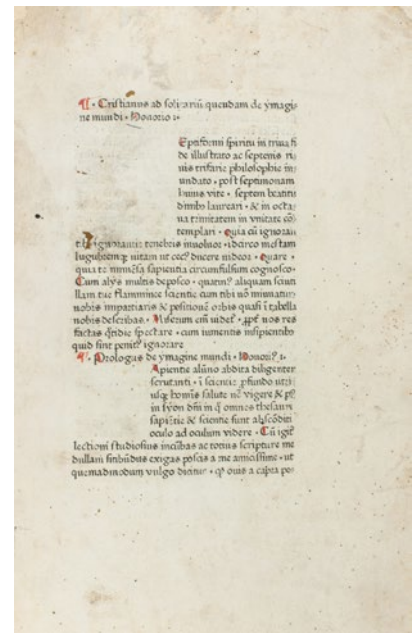 ¶ · Cristianus ad solitariū quendam de ymagi⸗
ne mundi · Honorio ·
Eptiformi spiritu in trina fi
de illustrato ac septenis ri⸗
uis trifarie philosophie in⸗
undato · post septimonam
huius vite · septem beatitu
dinibꝰ laureari · & in octa⸗
ua trinitatem in vnitate cō⸗
templari · Quia cū ignoran
tie tenebris inuoluor · idarco mestam
lugubremqꝫ uitam ut cecꝰ ducere uideor · quare ·
quia te immēsa sapientia circumfulsum cognosco ·
Cum alijs multis deposco · quatinꝰ aliquam scinti
llam tue flamminee scientie cum tibi nō minuatur
nobis impartiaris & positionē orbis quasi ī tabella
nobis describas · Miserum em̄ uidet᷑ · ꝓpt᷑ nos res
factas q̄tidie spectare · cum iumentis insipientibꝰ
quid sint penitꝰ ignorare
¶ · Prologus de ymagine mundi · Honorij ·
Apientie alūno abdita diligenter
scrutanti · ī scientie ꝓfundo utri⸗
usqꝫ hominis salute nē vigere & pꝰ
in syon dn̄m in q̄ omnes thesauri
sapiētie & scientie sunt abscōditi
oculo ad oculum videre · Cū igit᷑
lectioni studiosius incūbas ac totius scripture me
dullam sitibūdus exigas poscis a me amicissime · ut
quemadmodum vulgo dicitur · qꝫ ouis a capra pe⸗